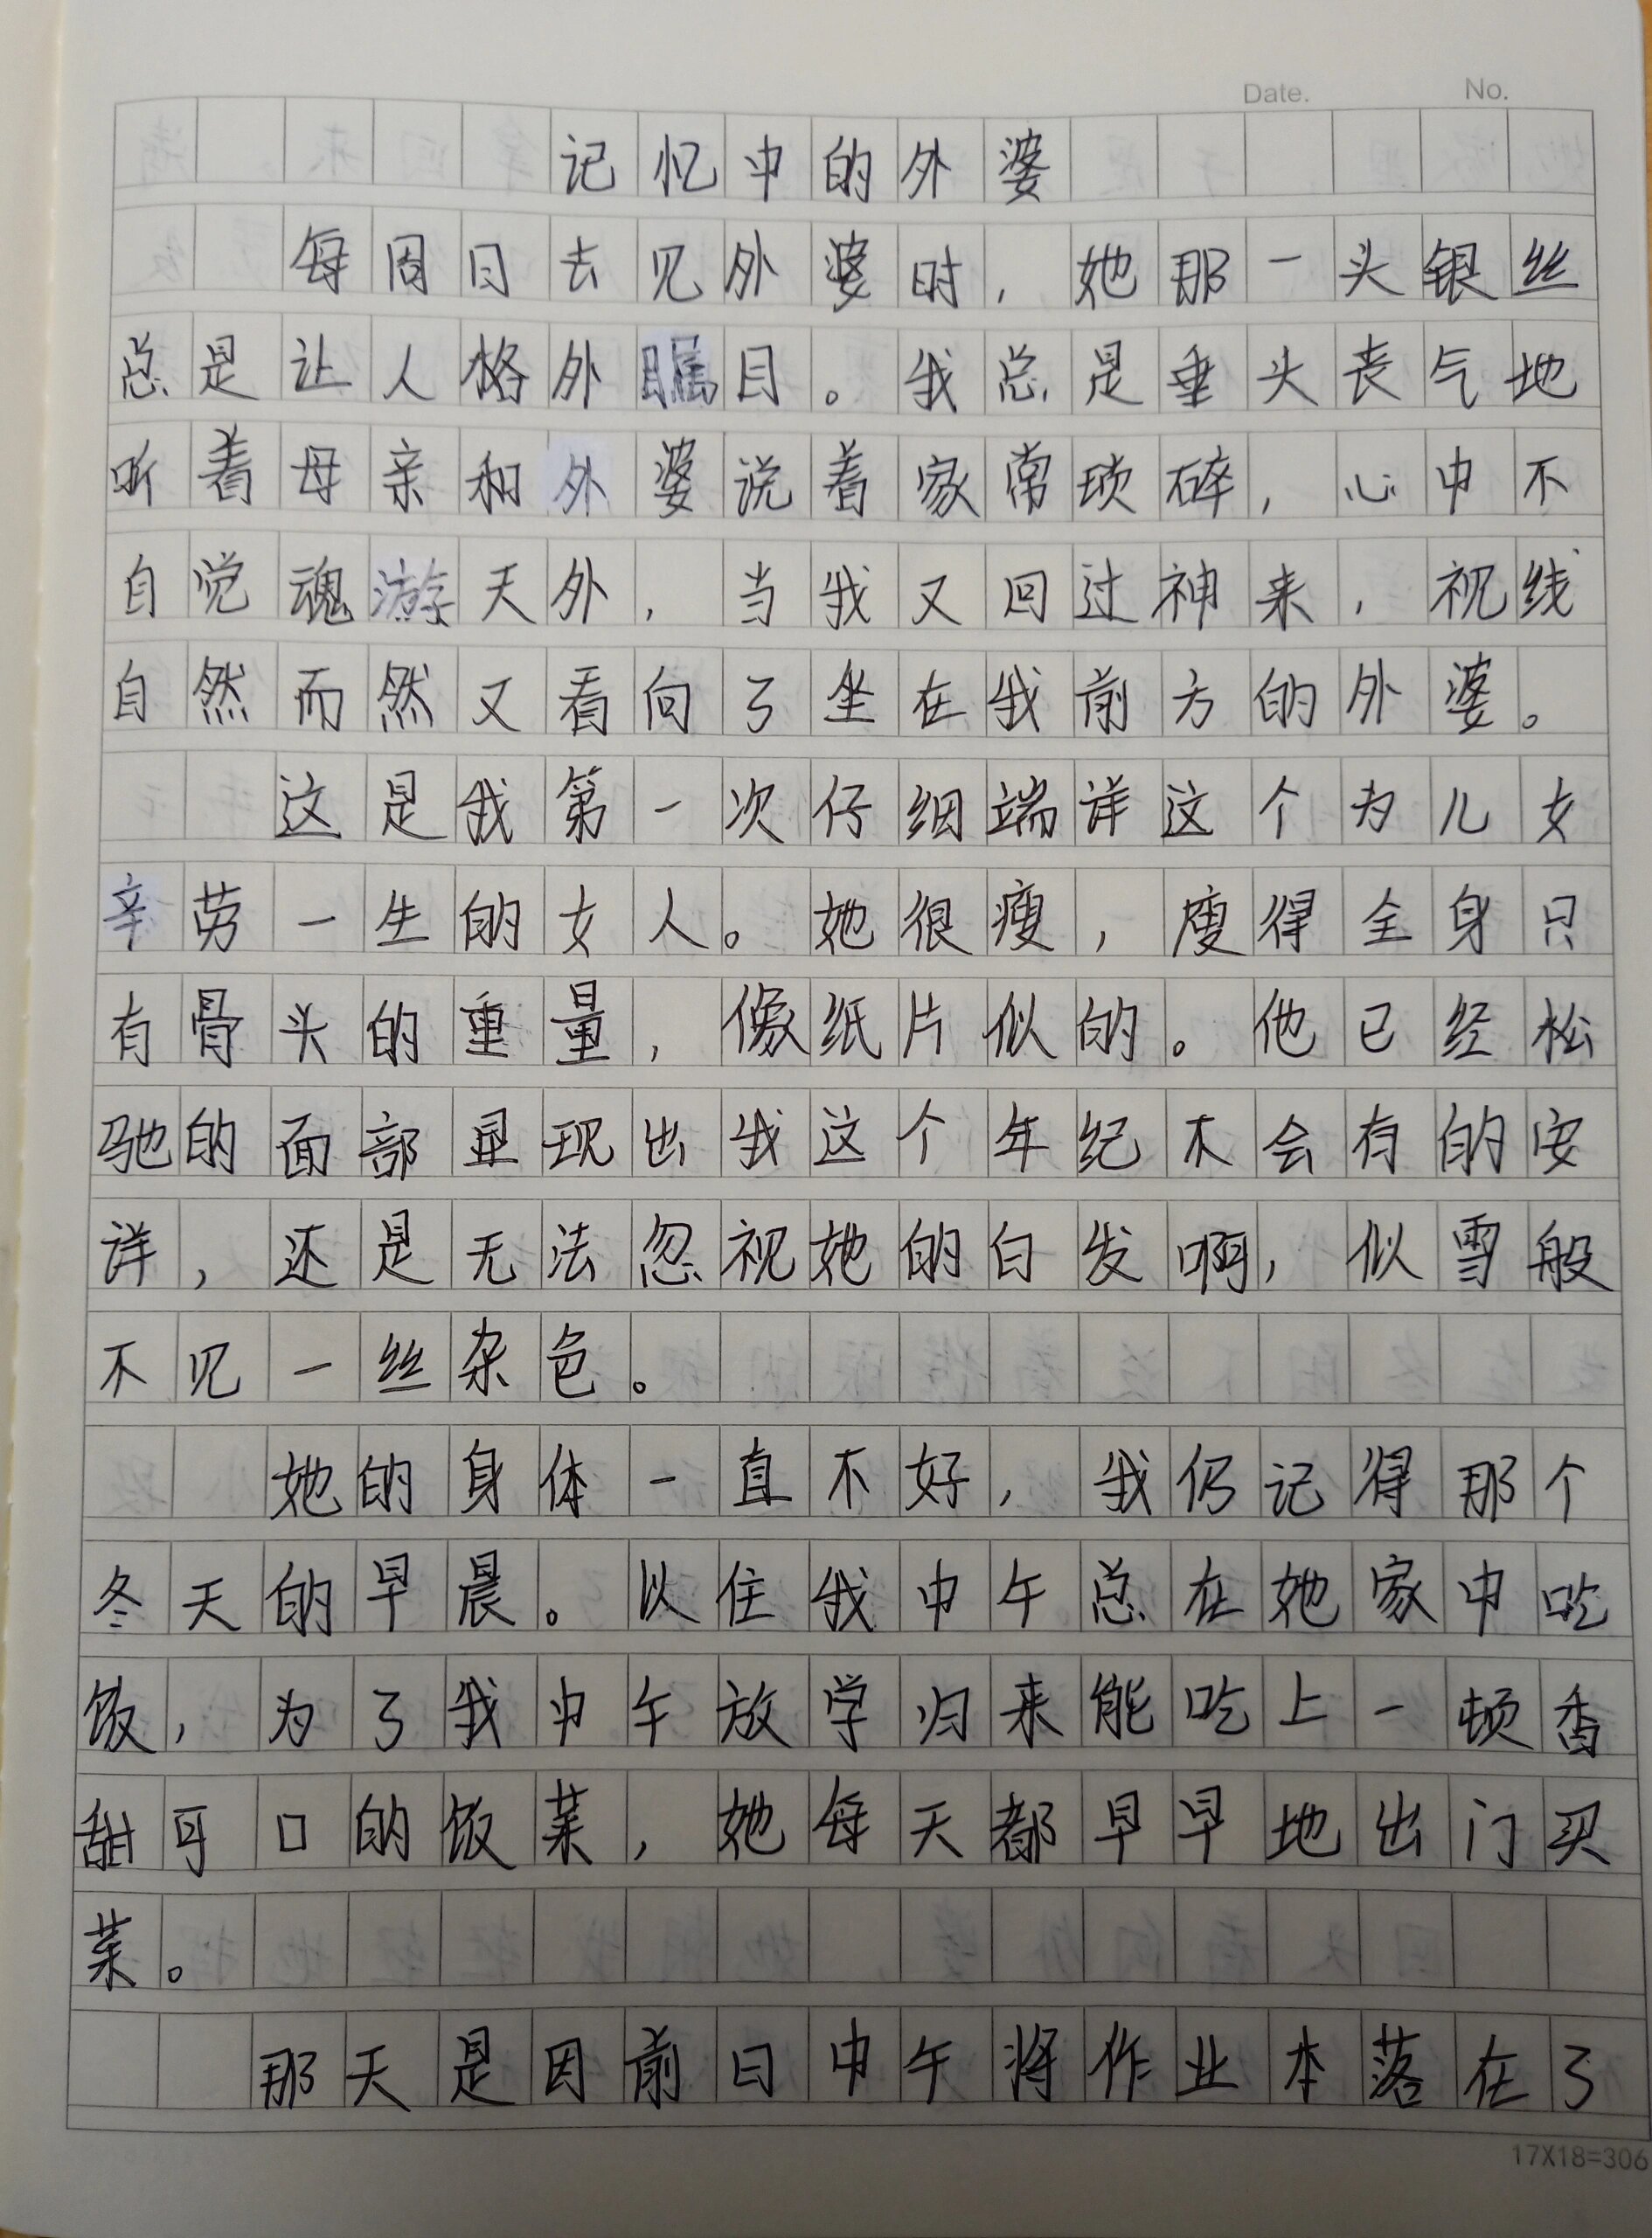 Date. No.
记忆中的外婆
每周日去见外婆时，她那一头银丝
总是让人格外瞩目。我总是垂头丧气地
听着母亲和外婆说着家常琐碎，心中不
自觉魂游天外，当我又回过神来，视线
自然而然又看向了坐在我前方的外婆。
这是我第一次仔细端详这个为儿女
辛劳一生的女人。她很瘦，瘦得全身只
有骨头的重量，像纸片似的。他已经松
驰的面部显现出我这个年纪不会有的安
详，还是无法忽视她的白发啊，似雪般
不见一丝杂色。
她的身体一直不好，我仍记得那个
冬天的早晨。以住我中午总在她家中吃
饭，为了我中午放学归来能吃上一顿香
甜可口的饭菜，她每天都早早地出门买
菜。
那天是因前日中午将作业本落在了
17X18=306